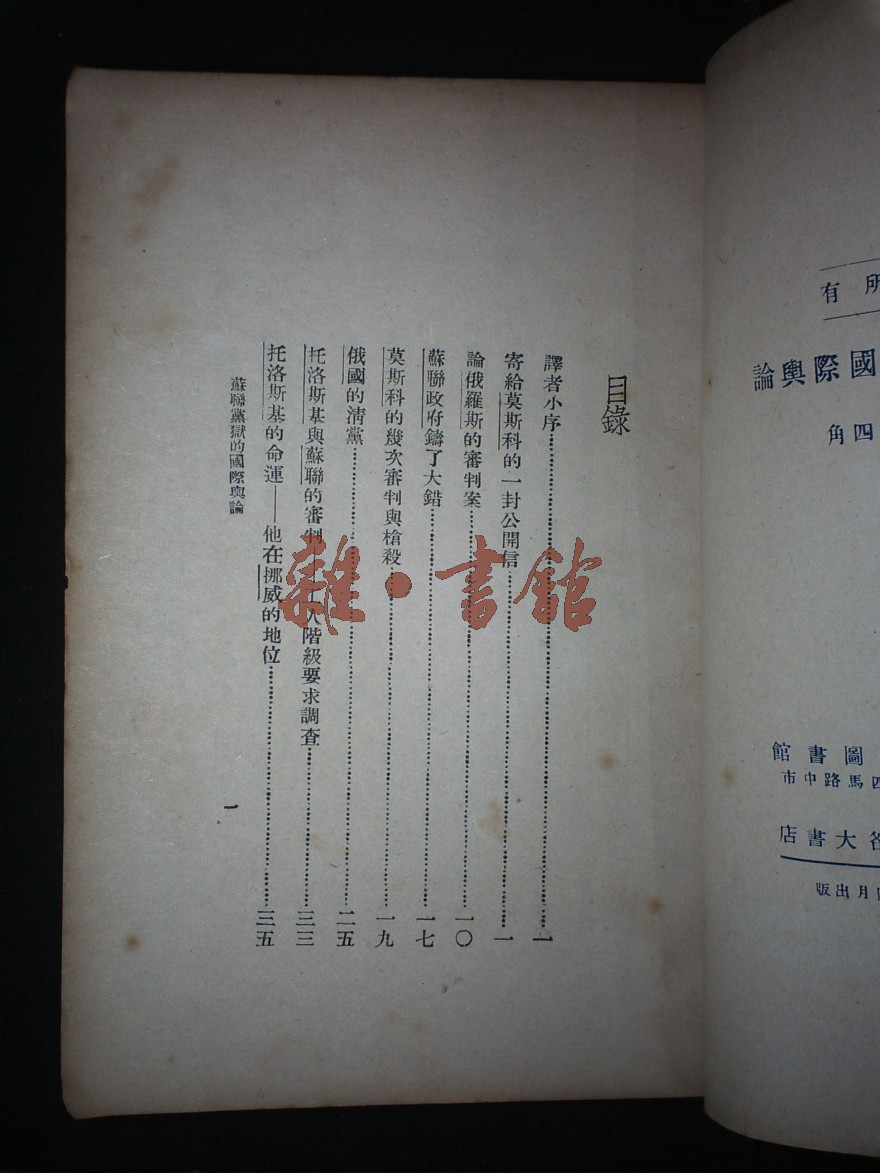 所有
國際輿論
四角
圖書館
四馬路中市
各大書店
月出版
目錄
譯者小序……一
寄給莫斯科的一封公開信……一
論俄羅斯的審判案……一〇
蘇聯政府鑄了大錯……一七
莫斯科的幾次審判與槍殺……一九
俄國的淸黨……二五
托洛斯基與蘇聯的審判——工人階級要求調查……三三
托洛斯基的命運——他在挪威的地位……三五
蘇聯黨獄的國際輿論
一
雜·書館